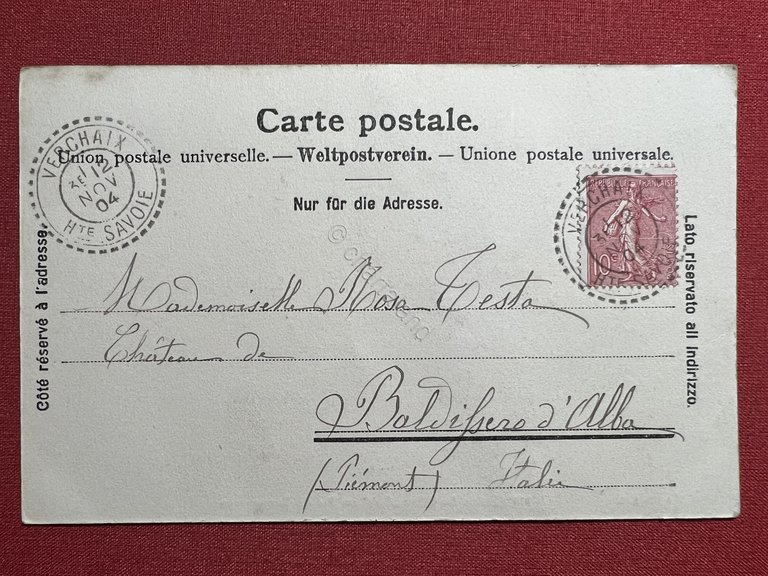 Carte postale.
Union postale universelle. — Weltpostverein. — Unione postale universale.
Nur für die Adresse.
VERCHAIX
12
NOV
04
HTE SAVOIE
RÉPUBLIQUE FRANÇAISE
10c
VERCHAIX
12
04
Côté réservé à l'adresse.
Lato riservato all indirizzo.
Mademoiselle Rosa Testa
Château de
Baldissero d'Alba
(Piémont) Italie